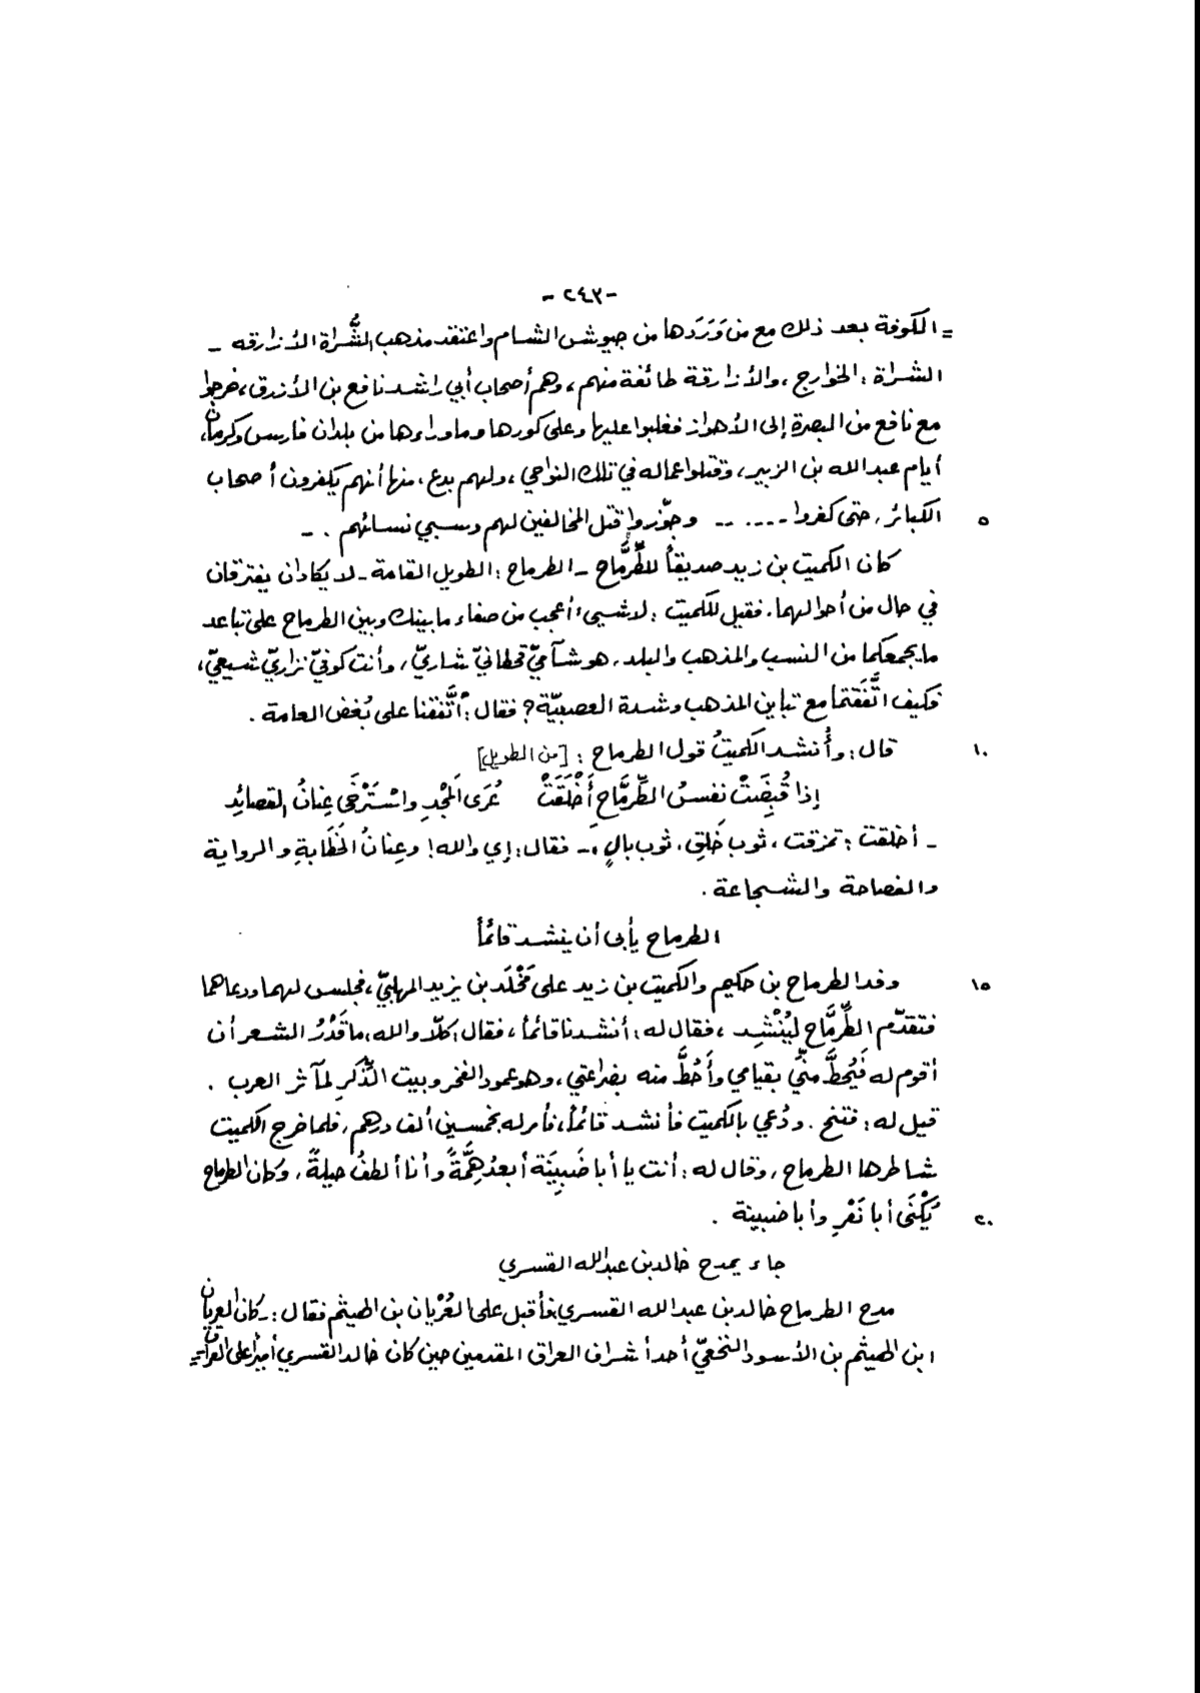 -٢٤٣-
= الكوفة بعد ذلك مع من وَرَدَها من جيوش الشام واعتقد مذهب الشُّراة الأزارقه -
الشراة : الخوارج ، والأزارقة طائفة منهم ، وهم أصحاب أبي راشد نافع بن الأزرق ، خرجوا
مع نافع من البصرة إلى الأهواز فغلبوا عليها وعلى كورها وما وراءها من بلدان فارس وكرمان ،
أيام عبد الله بن الزبير ، وقتلوا عماله في تلك النواحي ، ولهم بدع ، منها أنهم يكفرون أصحاب
٥ الكبائر ، حتى كفروا ..... -- وجوّزوا قتل المخالفين لهم وسبي نسائهم . -
كان الكميت بن زيد صديقاً للطِّرِمَّاح - الطرماح : الطويل القامة - لا يكادان يفترقان
في حال من أحوالهما . فقيل للكميت : لا شيىء أعجب من صفاء ما بينك وبين الطرماح على تباعد
ما يجمعكما من النسب والمذهب والبلد ، هو شآميّ قحطانيّ شاريّ ، وأنت كوفيّ نزاريّ شيعيّ ،
فكيف اتَّفَقتما مع تباين المذهب وشدة العصبيّة ؟ فقال : اتَّفقنا على بُغض العامة .
١٠ قال : وأُنشد الكميتُ قول الطرماح : [من الطويل]
إذا قُبِضَتْ نفسُ الطِّرِمَّاحِ أَخْلَقَتْ عُرَى المَجْدِ واسْتَرْخَى عِنانُ القصائِدِ
- أخلقت : تمزقت ، ثوب خَلِق ، ثوب بالٍ ، - فقال : إي والله ! وعِنانُ الخَطَابةِ والرواية
والفصاحة والشجاعة .
الطرماح يأبى أن ينشد قائماً
١٥ وفد الطرماح بن حكيم والكميت بن زيد على مَخْلَد بن يزيد المهلبيّ ، فجلس لهما ودعاهما
فتقدّم الطِّرِمَّاح ليُنْشِد ، فقال له : أنشدنا قائماً ، فقال : كلّا والله ، ما قَدْرُ الشعر أن
أقوم له فَيُحطَّ منّي بقيامي وأَحُطَّ منه بضراعتي ، وهو عمود الفخر وبيت الذِّكَرِ لمآثر العرب .
قيل له : فتنح . ودُعي بالكميت فأنشد قائماً ، فأمر له بخمسين ألف درهم ، فلما خرج الكميت
شاطرها الطرماح ، وقال له : أنت يا أبا ضَبِيَنة أبعدُ هِمَّةً وأنا ألطفُ حيلةً ، وكان الطرماح
٢٠ يُكْنَى أبا نَفْرٍ وأبا ضبينة .
جاء يمدح خالد بن عبد الله القسري
مدح الطرماح خالد بن عبد الله القسري فأقبل على العُرْيان بن الهيثم فقال : - كان العريان
ابن الهيثم بن الأسود النخعيّ أحد أشراف العراق المقدمين حين كان خالد القسري أميراً على العراق =